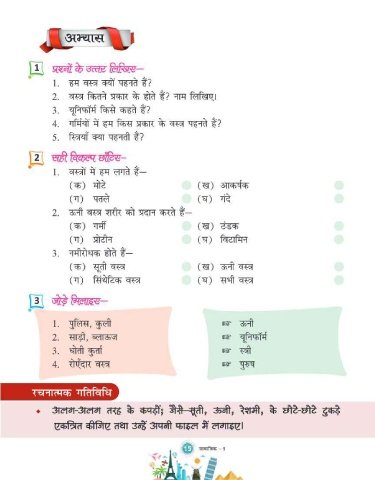 अभ्यास
1 प्रश्नों के उत्तर लिखिए–
1. हम वस्त्र क्यों पहनते हैं?
2. वस्त्र कितने प्रकार के होते हैं? नाम लिखिए।
3. यूनिफॉर्म किसे कहते हैं?
4. गर्मियों में हम किस प्रकार के वस्त्र पहनते हैं?
5. स्त्रियाँ क्या पहनती हैं?
2 सही विकल्प छाँटिए–
1. वस्त्रों में हम लगते हैं–
(क) मोटे (ख) आकर्षक
(ग) पतले (घ) गंदे
2. ऊनी वस्त्र शरीर को प्रदान करते हैं–
(क) गर्मी (ख) ठंडक
(ग) प्रोटीन (घ) विटामिन
3. नमीरोधक होते हैं–
(क) सूती वस्त्र (ख) ऊनी वस्त्र
(ग) सिंथेटिक वस्त्र (घ) सभी वस्त्र
3 जोड़े मिलाइए–
1. पुलिस, कुली ☞ ऊनी
2. साड़ी, ब्लाऊज ☞ यूनिफॉर्म
3. धोती कुर्ता ☞ स्त्री
4. रोएँदार वस्त्र ☞ पुरुष
रचनात्मक गतिविधि
• अलग-अलग तरह के कपड़ों; जैसे–सूती, ऊनी, रेशमी, के छोटे-छोटे टुकड़े
एकत्रित कीजिए तथा उन्हें अपनी फाइल में लगाइए।
15 सामाजिक - 1